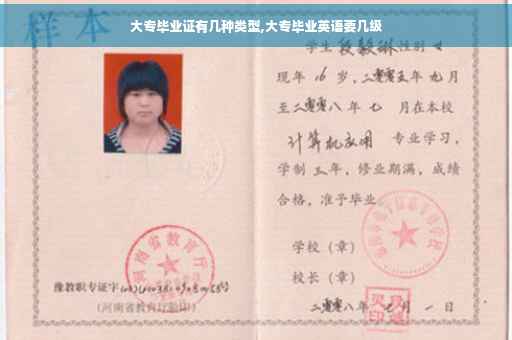 大专毕业证有几种类型,大专毕业英语要几级
样本
学生段毅琳性别女
现年16岁,二零零五年九月
至二零零八年七月在本校
计算机应用 专业学习,
学制三年,修业期满,成绩
合格,准予毕业
学校(章)
校长(章)
河南省教育厅
豫教职专证字
(河南省教育厅验印)
二零零八年七月一日